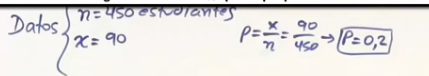 Datos { n=450 estudiantes
x=90
P=x/n=90/450→P=0,2